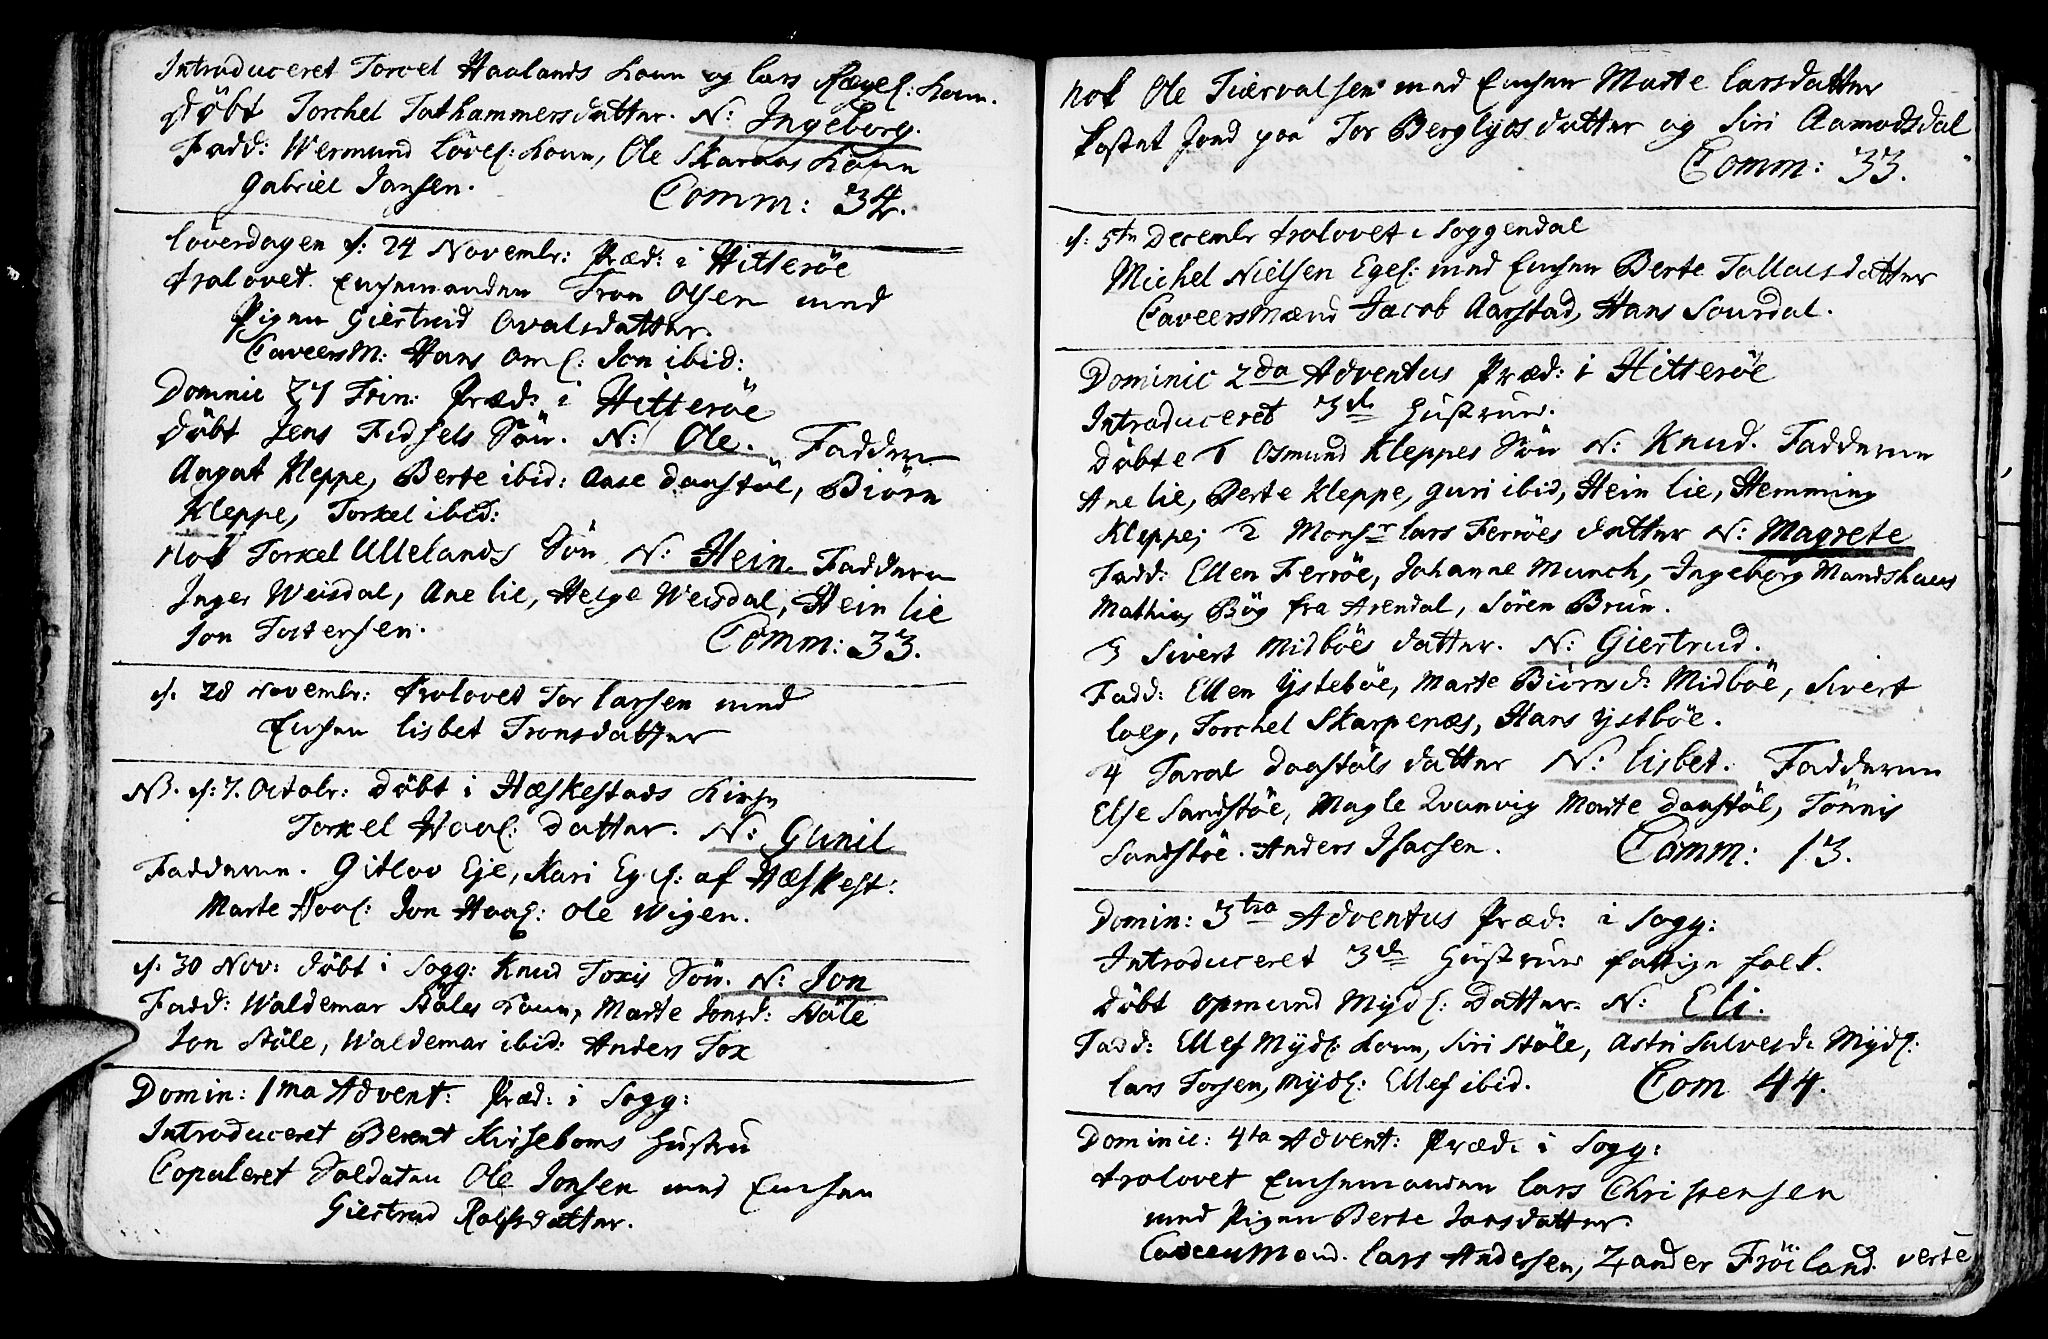 Introduceret Torcel Haalands Konn og Lars Rægef: Konn.
Döbt Torchel Tathammersdatter. N: Ingeborg.
Fadd: Wermund Lövef: Konn, Ole Skaraas Konn
Gabriel Jansen. Comm: 34.
Löverdagen d: 24 Novembr: Præd: i Hitteröe
trolovet Enchemanden Tron Olsen med
Pigen Giertrud Ovalsdatter.
CaveersM: Hans Om f: Jon ibid:
Domnic 27 Trin: Præd: i Hitteröe
Döbt Jens Fidsels Sön. N: Ole. Faddern
Aagat Kleppe, Berte ibid: Aase Daastöl, Biörn
Kleppe, Torkel ibid:
Nok Torkel Ullelands Sön N: Hein. Faddern
Inger Weisdal, Ane Lie, Helge Weisdal, Hein Lie
Jon Tostensen. Comm: 33.
d. 28 Novembr: trolovet Tor Larsen med
Enchen Lisbet Tronsdatter
NB. d: 7. Octobr: Döbt i Hæskestads Kirche
Torkel Haaf: datter. N: Gunil
Fadderne. Gitlov Eje, Kari Egef: af Hæskest:
Marte Haaf: Jon Haaf: Ole Wigen.
d: 30 Nov: döbt i Sogg: Knud Toxis Sön. N: Jon
Fadd: Waldemar Stöles Konn, Marte Jonsd: Stöle
Jon Stöle, Waldemar ibid: Anders Tox
Domin: 1ma Advent: Præd: i Sogg:
Introduceret Berent Kirseboms Hustru
Copuleret Soldaten Ole Jonsen med Enchen
Giertrud Rolfsdatter.
Nok Ole Tiærvalsen med Enchen Marte Larsdatter
kastet Jord paa Tor Berglyds datter og Siri Aamodsdal
Comm: 33.
d: 5te Decembr trolovet i Soggendal
Michel Nielsen Egef: med Enchen Berte Tallacsdatter
Caveersmænd Jacob Aarstad, Hans Sourdal.
Dominic 2da Adventus Præd: i Hitteröe
Introduceret 3de Hustruer.
Döbte 1 Osmund Kleppes Sön N: Knud. Fadderne
Ane Lie, Berte Kleppe, Guri ibid, Hein Lie, Hemming
Kleppe; 2 Monsr Lars Ferröes datter N: Magrete
Fadd: Ellen Ferröe, Johanne Munch, Ingeborg Mandshaus
Mathias Bög fra Arendal, Sören Brun.
3 Sivert Midböes datter. N: Giertrud.
Fadd: Ellen Ysteböe, Marte Biörnsd: Midböe, Sivert
Loeg, Torchel Skarpenæs, Hans Ystböe.
4 Taral Daastöls datter N: Lisbet. Fadderne
Else Sandstöe, Magle Qvanvig Marte Daastöl, Tönnis
Sandstöe. Anders Isacsen. Comm: 13.
Domin: 3tia Adventus Præd: i Sogg:
Introduceret 3de Hustruer fattige folk.
Döbt Opmund Mydf: Datter. N: Eli.
Fadd: Ellef Mydf: Konn, Siri Stöle, Astri Salvesd: Mydf:
Lars Torsen, Mydf: Ellef ibid. Com 44.
Dominic: 4ta Advent: Præd: i Sogg:
trolovet Enchemanden Lars Christensen
med Pigen Berte Larsdatter.
Caveersmænd. Lars Andersen, Zander Fröiland verte